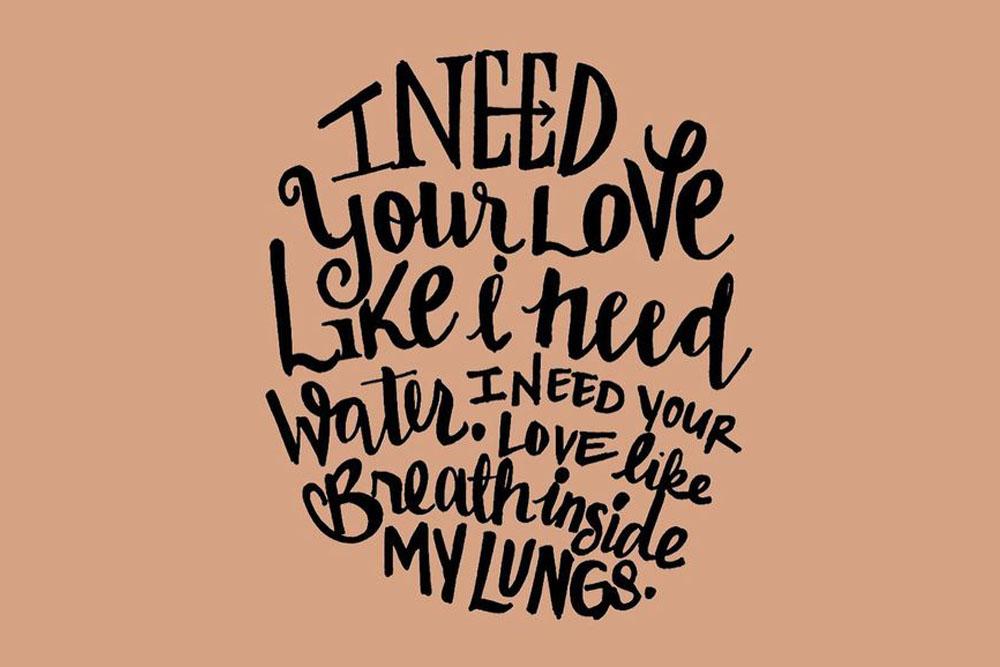 I NEED
Your LOVe
Like i need
Water. I NEED YOUR
LOVE like
Breath inside
MY LUNGS.